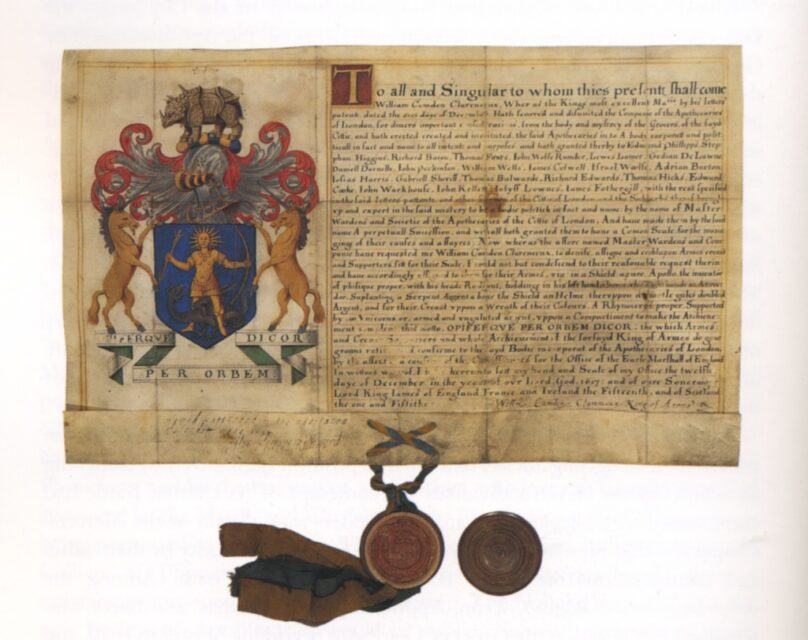 OPIFERQVE DICOR
PER ORBEM
To all and Singular to whom thies present shall come
William Camden Clarenceux, Wher as the Kings most excellent Matie by his letters
patent, dated the day of December, Hath severed and disunited the Companie of the Apothecaries
of London, for divers important from the body and mystery of the Grocers, of the sayd
Cittie, and hath erected created and instituted, the said Apothecaries in to A body corporat and polit
ticall in fact and name to all intents and purposes and hath granted therby to Edmund Phillipps Step
phan Higgins, Richard Bacon, Thomas Fones, John Wolfe Rumler, Lewes Laumer, Gedian De Laune
Daniell Darnelly, John Peckinson William Wells James Colwell Israel Woolfe, Adrian Barton
Josias Harris, Gabriell Sheriff, Thomas Bulwarde, Richard Edwards, Thomas Hicks, Edward
Cooke, John Warkhouse, John Kellet Rolyff Lownes, James Fothergill, with the rest specified
in the said letters pattents, and other of the Cittie of London, and the Suburbs therof brought
vp and expert in the said mistery to be a bodie politick in fact and name, by the name of Master
Wardens and Societie of the Apothecaries of the Cittie of London, And hath made them by the said
name A perpetuall Succession, and with all hath granted them to haue a Comon Seale, for the mana
ging of their causes and affayres, Now wheras the affore named Master Wardens and Com
panie haue requested me William Camden Clarenceux, to devise, assigne and emblazon Armes creast
and Supporters fitt for their Seale, I could not but condescend to their reasonable request therin
and haue accordingly assigned to them for their Armes, viz in a Shield azure, Apollo the inuentor
of phisique proper, with his heade Radiant, holdding in his left hand a bowe and in his right hand an Arrow
dor, Suplanting a Serpent Argent aboue the Shield an Helme therevppon a mantle gules doubled
Argent, and for their Creast vppon a Wreath of their Colours, A Rhynoceros proper Supported
by two Vnicorns or, armed and vngulated argent, vppon a Compartiment to make the Atchieue
ment compleat this motto, OPIFERQVE PER ORBEM DICOR, the which Armes
and Creast Supporters and whole Atchieuement, I the forsayd King of Armes do giue
graunt ratifie and confirme to the sayd Bodie incorporat of the Apothecaries of London,
by the assent and consent of the Comissioners for the Office of the Earle Marshall of England
In witnes wherof I haue hereunto sett my hand and Seale of my Office, the twelfth
daye of December, in the yeere of our Lord God, 1617, and of oure Soueraigne
Lord King Iames of England France and Ireland the Fifteenth, and of Scotland
the one and Fifteth. Willm Camden Clarenceux King of Armes